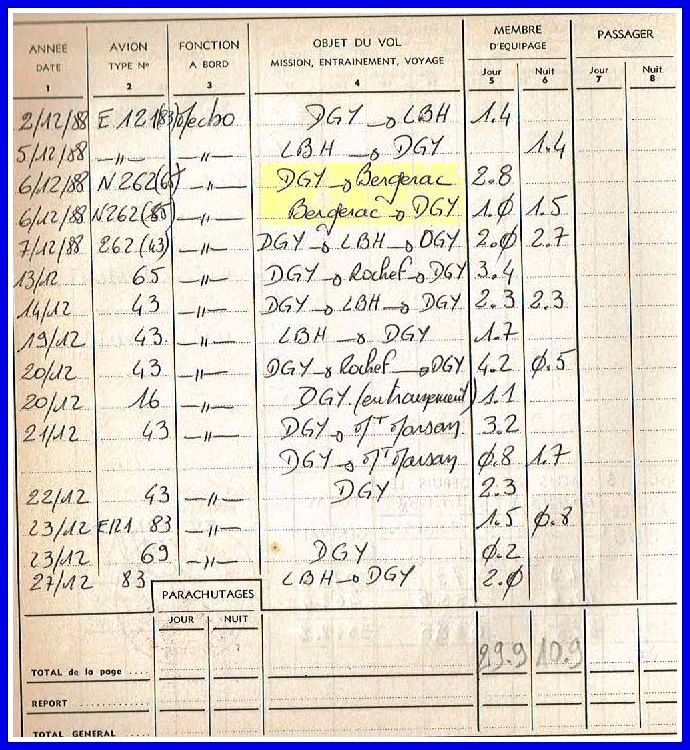 ANNEE DATE AVION TYPE N° FONCTION A BORD OBJET DU VOL MISSION, ENTRAINEMENT, VOYAGE MEMBRE D'EQUIPAGE PASSAGER
Jour Nuit Jour Nuit
1 2 3 4 5 6 7 8
2/12/88 E 121(83) Mecho DGY → LBH 1.4
5/12/88 —〃— —〃— LBH → DGY 1.4
6/12/88 N262(65) —〃— DGY → Bergerac 2.8
6/12/88 N262(65) —〃— Bergerac → DGY 1.0 1.5
7/12/88 262(43) —〃— DGY → LBH → DGY 2.0 2.7
13/12 65 —〃— DGY → Rochef → DGY 3.4
14/12 43 —〃— DGY → LBH → DGY 2.3 2.3
19/12 43 —〃— LBH → DGY 1.7
20/12 43 —〃— DGY → Rochef → DGY 4.2 0.5
20/12 16 —〃— DGY (entrainement) 1.1
21/12 43 —〃— DGY → Mt Marsan 3.2
DGY → Mt Marsan 0.8 1.7
22/12 43 —〃— DGY 2.3
23/12 E121 83 —〃— 1.5 0.8
23/12 69 —〃— DGY 0.2
27/12 83 —〃— LBH → DGY 2.0
PARACHUTAGES
JOUR NUIT
TOTAL de la page 29.9 10.9
REPORT
TOTAL GENERAL